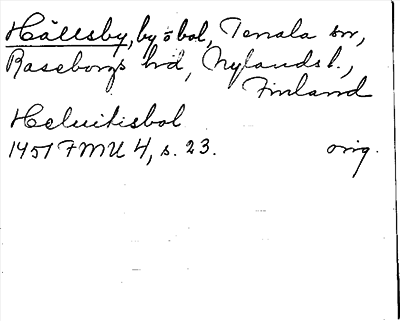 Hällsby, by o bol, Tenala sn,
Raseborgs hd, Nylands l.,
Finland
Heluitisbol
1451 FMU 4, s. 23. orig.